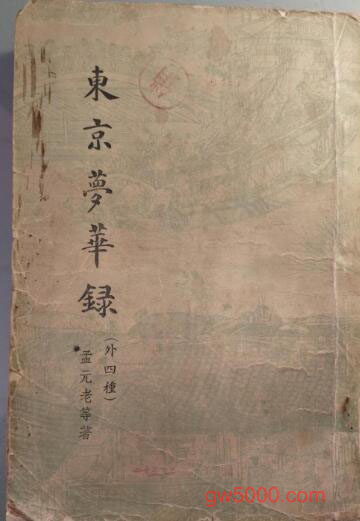 東京夢華録
(外四種)
孟元老等著
gw5000.com